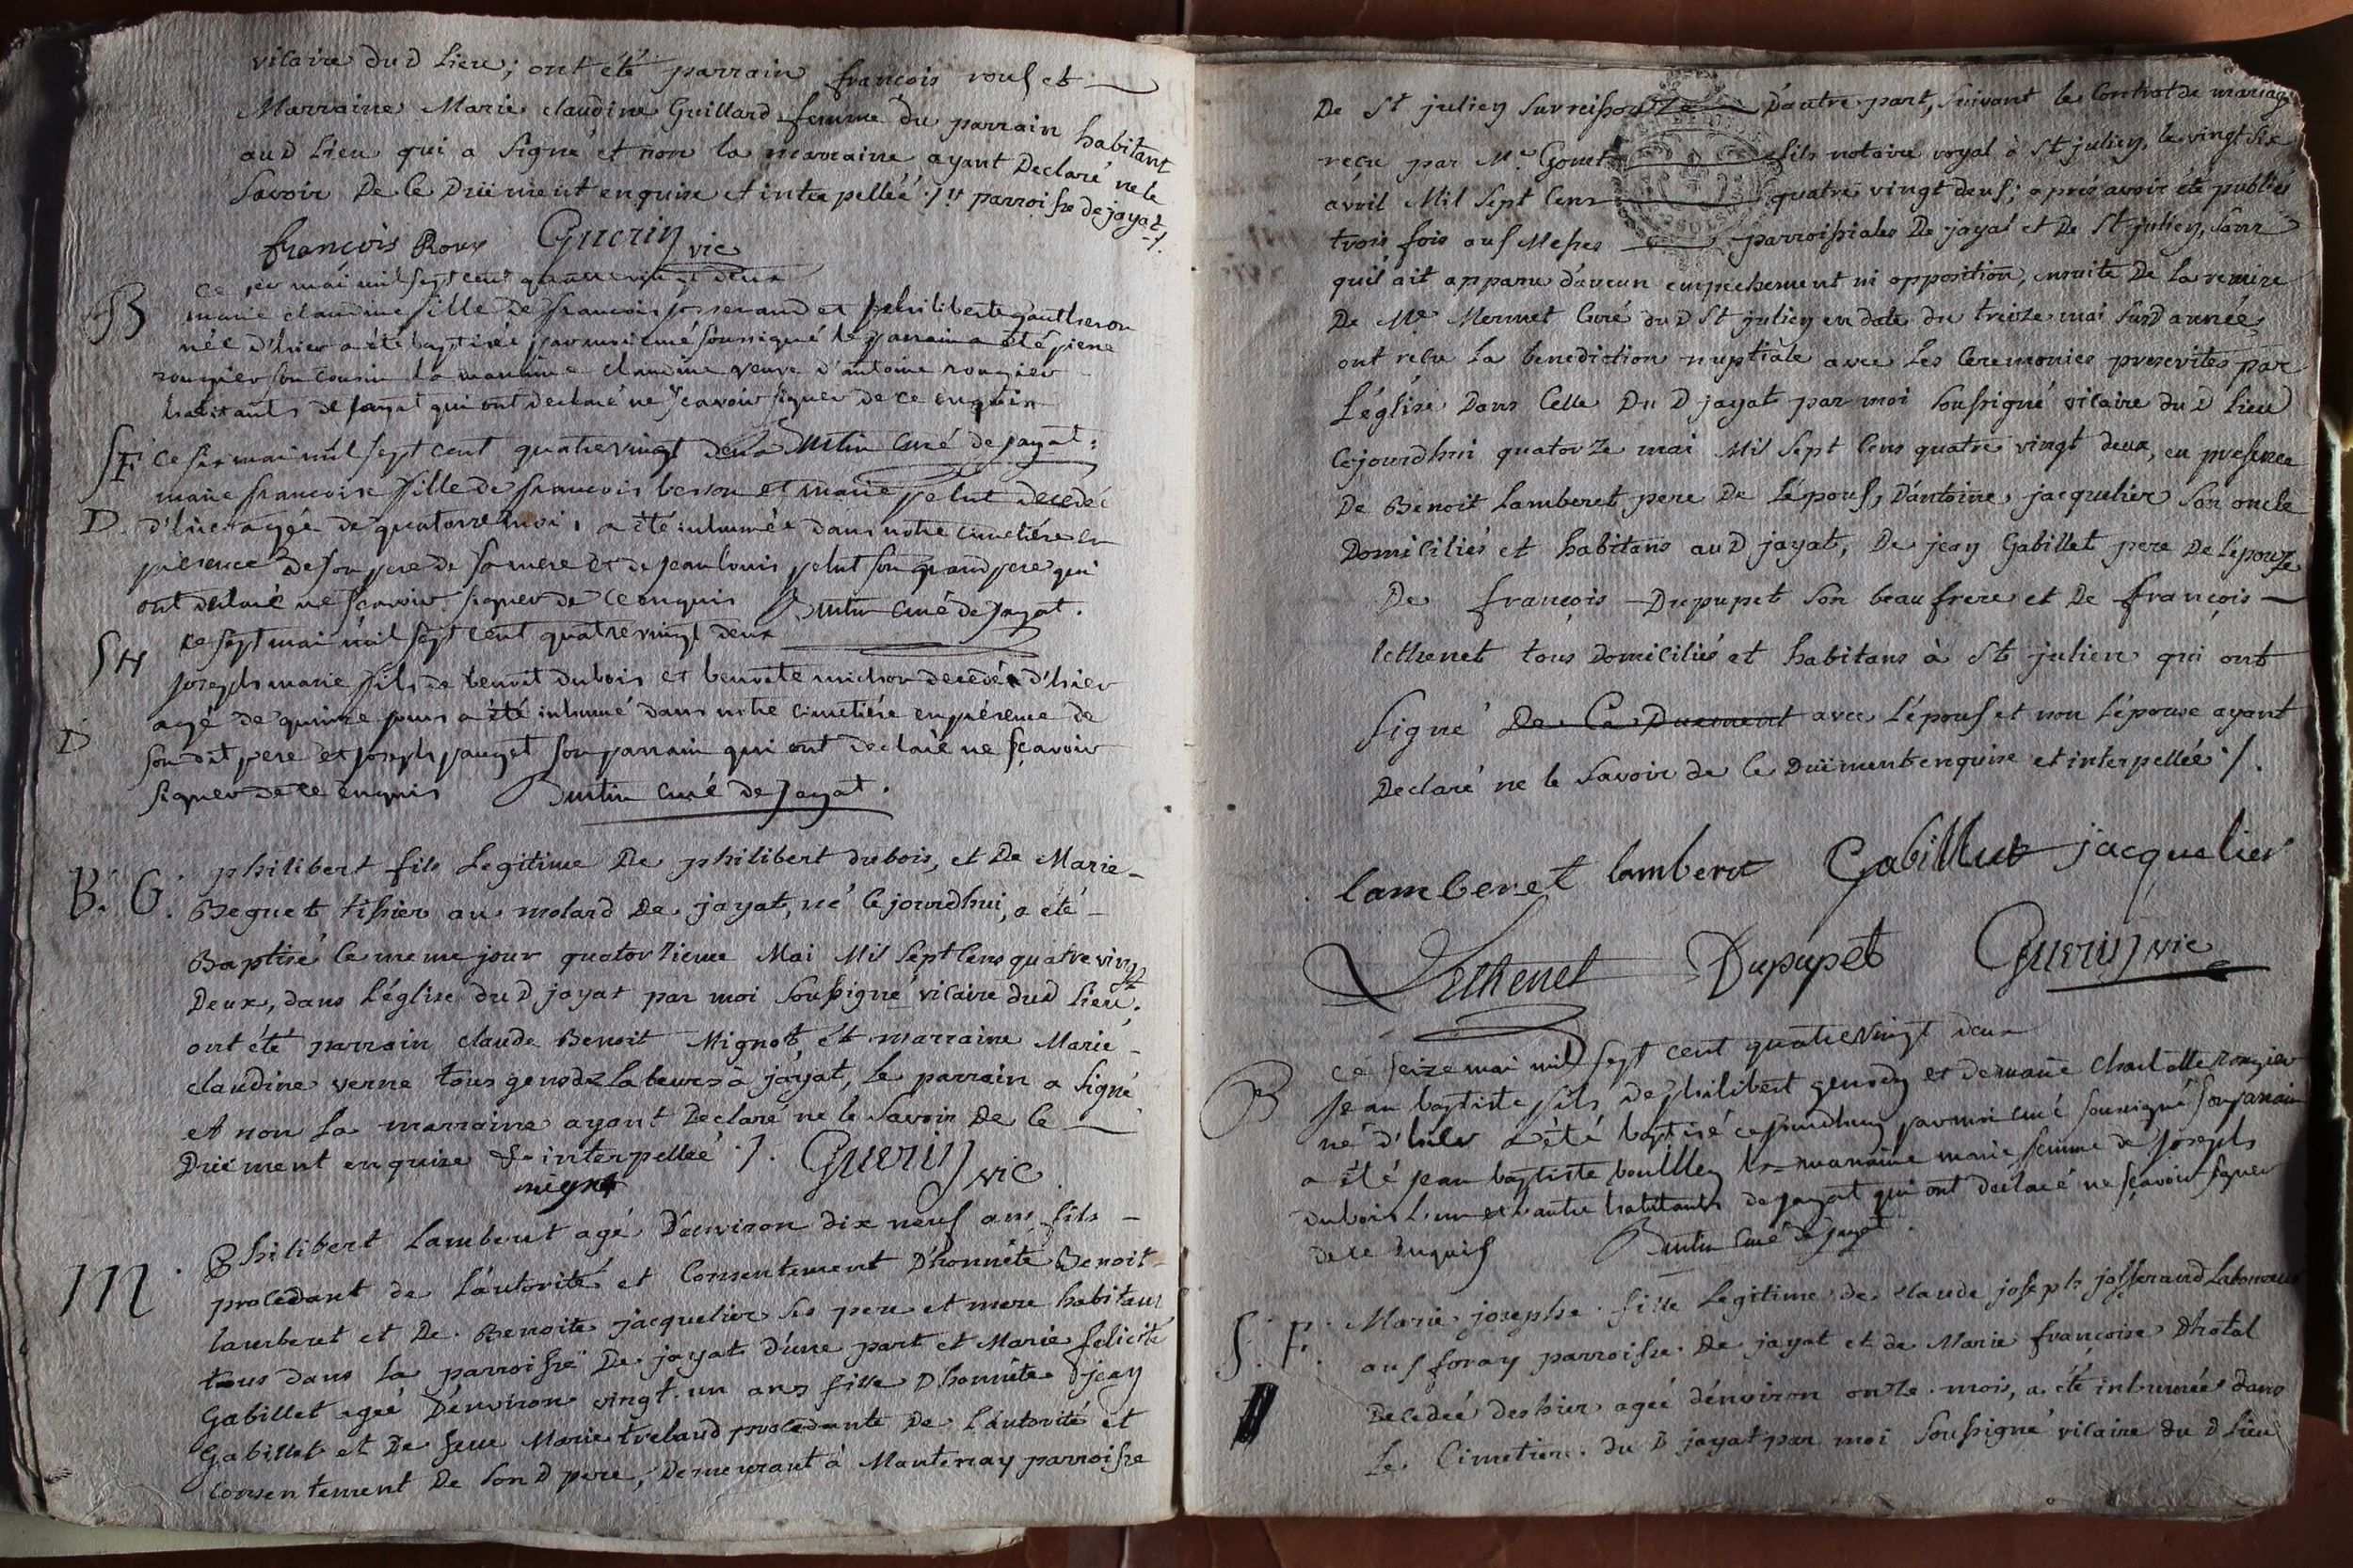 vicaire du D Lieu; ont été parrain françois rous et
Marraine Marie claudine Guillard femme du parrain habitant
au D Lieu qui a signé et non la marraine ayant Declaré ne le
savoir De ce Duëment enquise et interpellée ./. parroisse de jayat ./.
françois Roux Guerin vic
ce 1er mai mil sept cent quatre vingt deux
B
marie claudine fille de francois josserand et philiberte gautheron
née d'hier a été baptisée par moi curé soussigné le parrain a été piere
rougier son cousin la marraine claudine veuve d'antoine rougier
habitants de jayat qui ont declaré ne sçavoir signer de ce enquis
SF
ce six mai mil sept cent quatre vingt deux Butin curé de jayat.
marie francoise fille de francois besson et marie pelut decedée
D. d'hier agée de quatorze mois, a été inhumée dans notre cimetière en
présence de son pere de sa mere et de jean louis pelut son grand pere qui
ont declaré ne sçavoir signer de ce enquis Butin curé de jayat.
SH ce sept mai mil sept cent quatre vingt deux
joseph marie fils de benoit dubois et benoite michon decedé d'hier
agé de quinze jours a été inhumé dans notre cimetière en présence de
D
son dit pere et joseph pauget son parrain qui ont declaré ne sçavoir
signer de ce enquis Butin curé de jayat.
B. G. philibert fils Legitime De philibert dubois, et De Marie
Beguet tissier au molard De jayat, né cejourdhui, a été
Baptisé le meme jour quatorzieme Mai Mil sept cens quatre vingt
Deux, dans L'église du D jayat par moi soussigné vicaire du D Lieu.
ont été parrain claude Benoit Mignot, et marraine Marie
claudine verne tous gens de Labeurs à jayat, Le parrain a signé
et non La marraine ayant Declaré ne le savoir De ce
Duëment enquise & interpellée ./. Guerin vic
M. Philibert Lamberet agé D'environ dix neuf ans fils
procedant de L'autorité et Consentement D'honnête Benoit
lamberet et De Benoite jacquelier ses pere et mere habitans
tous dans la parroisse De jayat d'une part et Marie felicité
Gabillet agée D'environ vingt un ans fille D'honnête jean
Gabillet et De feue Marie trebaud procedante De L'autorité et
consentement De son D pere, Demeurant à Mantenay parroisse
De St julien sur reissouze D'autre part, suivant le Contrat de mariage
reçu par Me Gonet fils notaire royal à St julien, le vingt six
avril Mil sept cens quatre vingt deux; après avoir été publiés
trois fois aux Messes parroissiales De jayat et De St julien, sans
quil ait apparu d'aucun empechement ni opposition, ensuite De la remise
De Me Mermet Curé du D St julien en date du treize mai susd année,
ont reçu La benediction nuptiale avec Les Ceremonies prescrites par
L'église Dans Celle Du D jayat par moi soussigné vicaire du D Lieu
Cejourdhui quatorze mai Mil sept cens quatre vingt deux, en presence
De Benoit Lamberet pere De L'epoux, D'antoine jacquelier son oncle
Domiciliés et habitans au D jayat, De jean Gabillet pere De L'épouze
De françois Dupupet son beau frere et De françois
lethenet tous Domiciliés et habitans à St julien qui ont
signé De Ce Duement avec L'époux et non L'épouse ayant
Declaré ne le savoir de ce Duëment enquise et interpellée ./.
lamberet lamberet Gabillet jacquelier
Lethenet Dupupet Guerin vic
ce seize mai mil sept cent quatre vingt deux
B jean baptiste fils de philibert genody et de marie charlotte rougier
né d'hier a été baptisé ce jourdhuy par moi curé soussigné son parrain
a été jean baptiste la marraine marie femme de joseph
dubois l'un et l'autre habitants de jayat qui ont declaré ne sçavoir signer
de ce enquis Butin curé de jayat.
S. F. Marie josephe fille Legitime de claude joseph josserand Laboureur
aux foray parroisse De jayat et de Marie françoise Dhotal
Decedée des hier agée d'environ onze mois, a été inhumée dans
Le Cimetiere du D jayat par moi soussigné vicaire du D Lieu